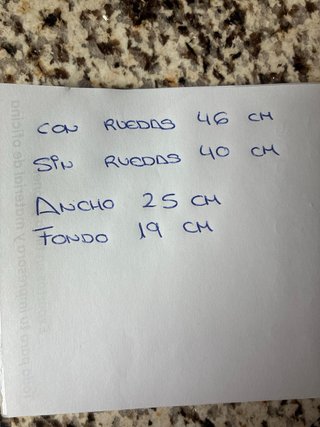 CON RUEDAS 46 CM
SiN RUEDAS 40 CM
ANCHO 25 CM
FONDO 19 CM